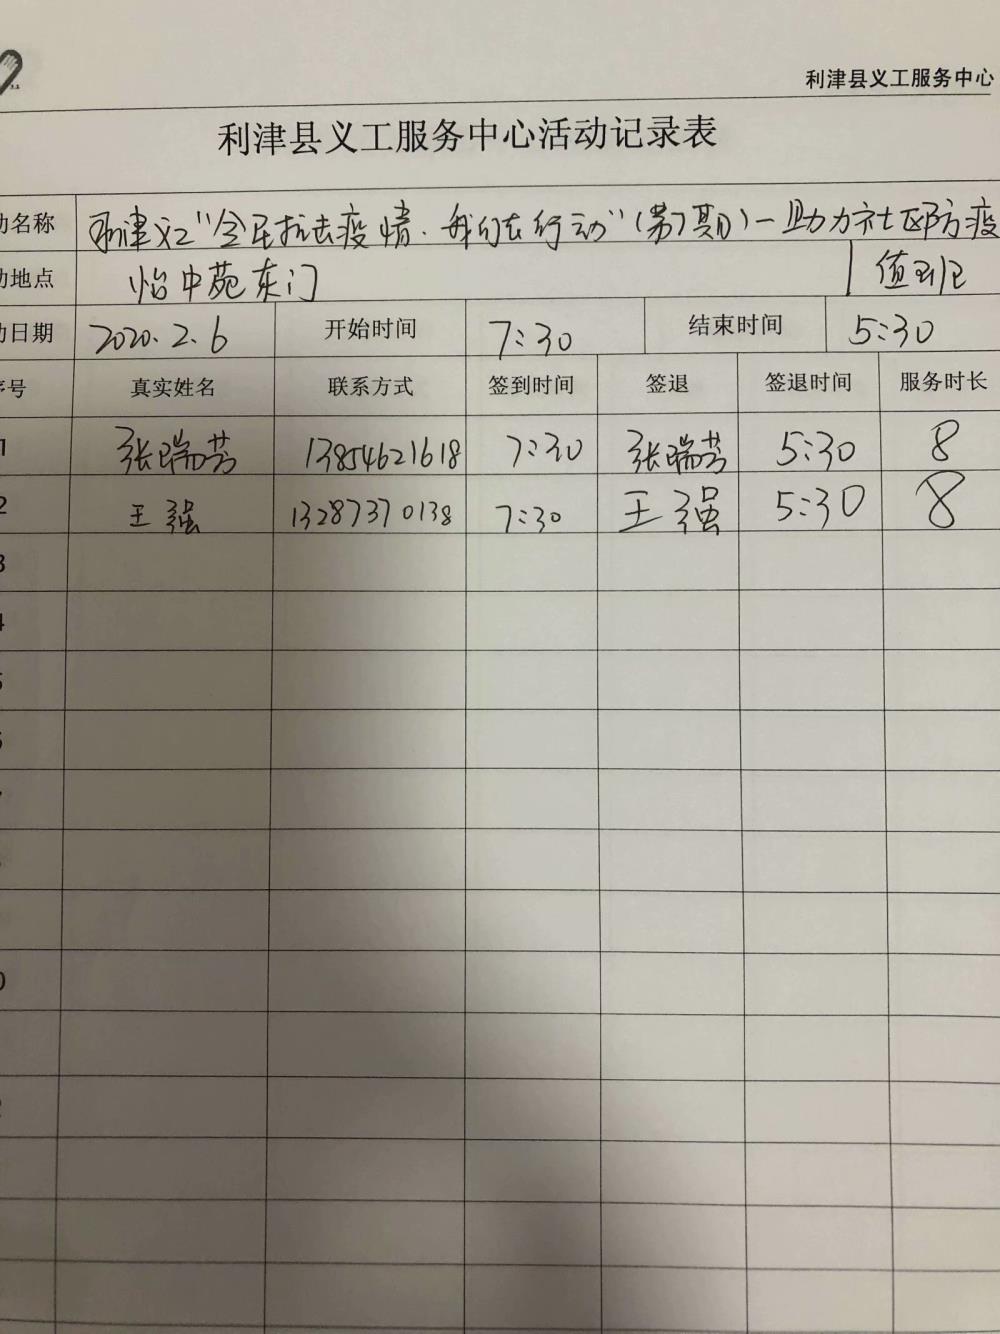 利津县义工服务中心
利津县义工服务中心活动记录表
动名称 利津义工"全民抗击疫情·我们在行动"(第7期)—助力社区防疫
动地点 怡中苑东门 值班
动日期 2020.2.6 开始时间 7:30 结束时间 5:30
序号 真实姓名 联系方式 签到时间 签退 签退时间 服务时长
1 张瑞芳 13854621618 7:30 张瑞芳 5:30 8
2 王强 13287370138 7:30 王强 5:30 8
3
4
5